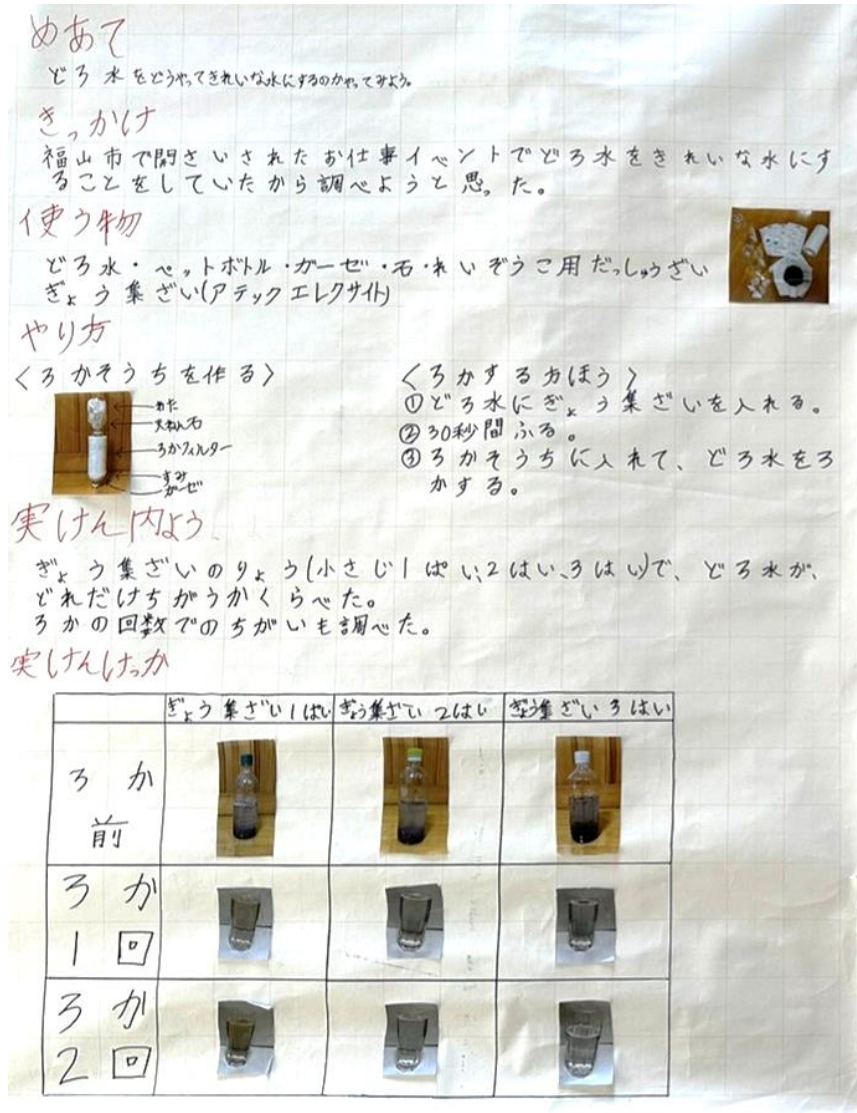 めあて
どろ水をどうやってきれいな水にするのかやってみよう。
きっかけ
福山市で開さいされたお仕事イベントでどろ水をきれいな水にす
ることをしていたから調べようと思った。
使う物
どろ水・ペットボトル・ガーゼ・石・れいぞうこ用だっしゅうざい
ぎょう集ざい(アテックエレクサイト)
やり方
〈ろかそうちを作る〉
わた
天ねん石
ろかフィルター
すみ
ガーゼ
〈ろかする方ほう〉
①どろ水にぎょう集ざいを入れる。
②30秒間ふる。
③ろかそうちに入れて、どろ水をろ
かする。
実けん内よう
ぎょう集ざいのりょう(小さじ1ぱい、2はい、3はい)で、どろ水が、
どれだけちがうかくらべた。
ろかの回数でのちがいも調べた。
実けんけっか
ぎょう集ざい1ぱい ぎょう集ざい2はい ぎょう集ざい3はい
ろか
前
ろか
1回
ろか
2回